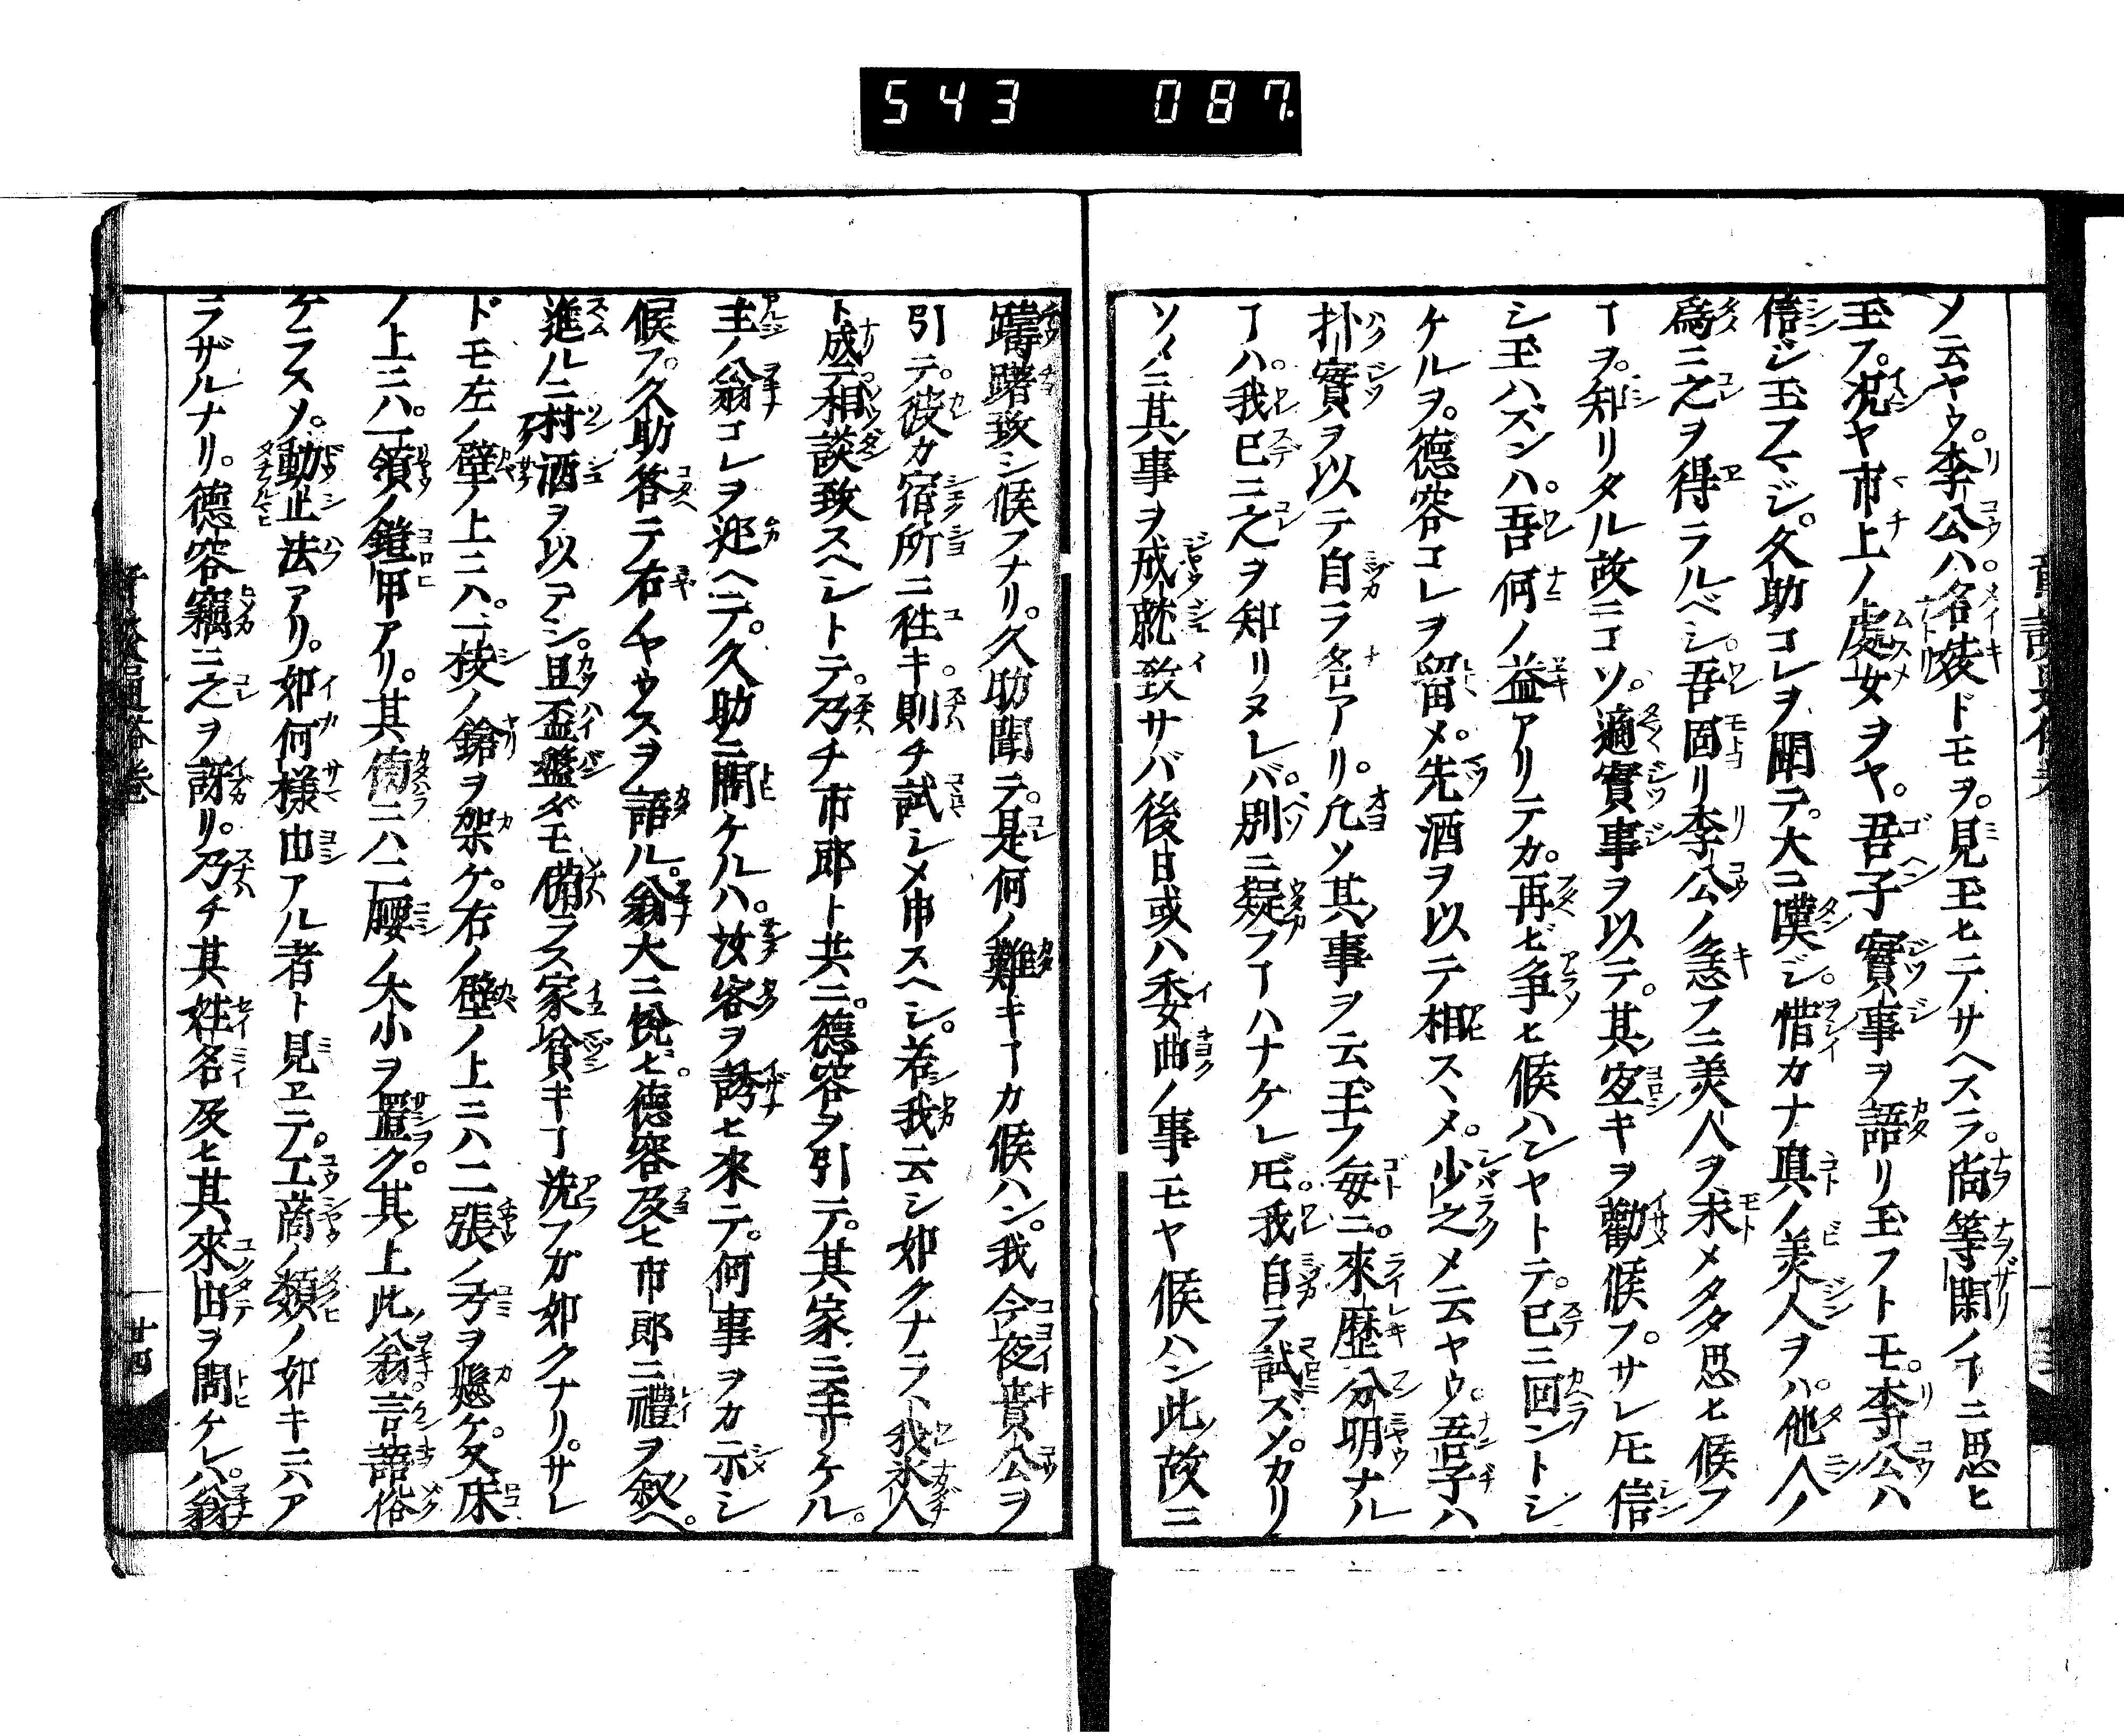 543 087
ソ云ヤウ。李公ハ。名妓ドモヲ。見玉ヒテサヘスラ。尚等閑ノ丁ニ思ヒ
玉フ。况ヤ市上ノ處女ヲヤ。吾子實事ヲ語リ玉フトモ。李公ハ
信シ玉フマジ。久助コレヲ聞テ。大コ嘆ジ。惜カナ真ノ美人ヲハ。他人ノ
爲ニ之ヲ得ラルベシ。吾固リ李公ノ急フニ美人ヲ求メタク思ヒ候フ
丁ヲ。知リタル故ニコソ。適實事ヲ以テ。其宜キヲ勸候フ。サレ𪜈信
シ玉ハズンハ。吾何ノ益アリテカ。再ビ争ヒ候ハンヤトテ。已ニ回ントシ
ケルヲ。德容コレヲ留メ。先酒ヲ以テ相スヽメ。少之メ云ヤウ。吾子ハ
朴實ヲ以テ自ラ名アリ。凡ソ其事ヲ云玉フ毎ニ。來歴分明ナル
丁ハ。我已ニ之ヲ知リヌレバ。別ニ疑フ丁ハナケレ𪜈。我自ラ試ズソ。カリ
ソメニ其事ヲ成就致サバ後日或ハ委曲ノ事モヤ候ハン此故ニ
躊躇致シ候フナリ。久助聞テ。是何ノ難キ丁カ候ハン。我今夜貴公ヲ
引テ。彼カ宿所ニ往キ則チ試シメ申スヘシ。若我云シ如クナラハ我氷人
ト成テ。相談致スヘシトテ。乃チ市郎ト共ニ。德容ヲ引テ。其家ニ至リケル。
主ノ翁コレヲ迎ヘテ。久助ニ問ケルハ。汝客ヲ誘ヒ來テ。何事ヲカ示シ
候フ。久助答テ右ノヤウスヲ語ル。翁大ニ悦ビ。德容及ヒ市郎ニ禮ヲ叙ヘ。
進ルニ村酒ヲ以アシ。且盃盤ダモ備ラス家貧キ丁洗フカ如クナリ。サレ
ドモ左ノ壁ノ上ニハ。一枝ノ鎗ヲ架ケ。右ノ壁ノ上ニハ二張ノ弓ヲ懸ケ。又床
ノ上ニハ。一領ノ鎧甲アリ。其傍ニハ二腰ノ大小ヲ置ク。其上此翁言語俗
ケラスメ。動止法アリ。如何樣由アル者ト見エテ。工商ノ類ノ如キニハア
ラザルナリ。德容竊ニ之ヲ訝リ。乃チ其姓名及ヒ其來由ヲ問ケレハ。翁
廿四